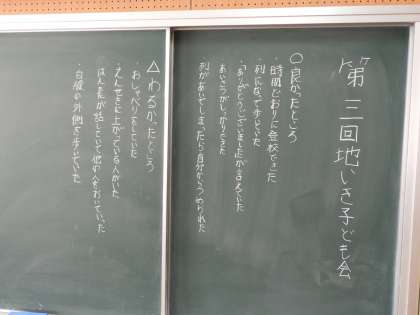 第三回地いき子ども会
○良かったところ
・時間どおりに登校できた
・列になって歩いた
・「ありがとうございました」が言えていた
・あいさつがしっかりできた
・列があいてしまったら自分からつめられた
△わるかったところ
・おしゃべりをしていた
・えんせきに上がっている人がいた
・はん長が話をしていて他の人をおいていった
・白線の外側を歩いていた